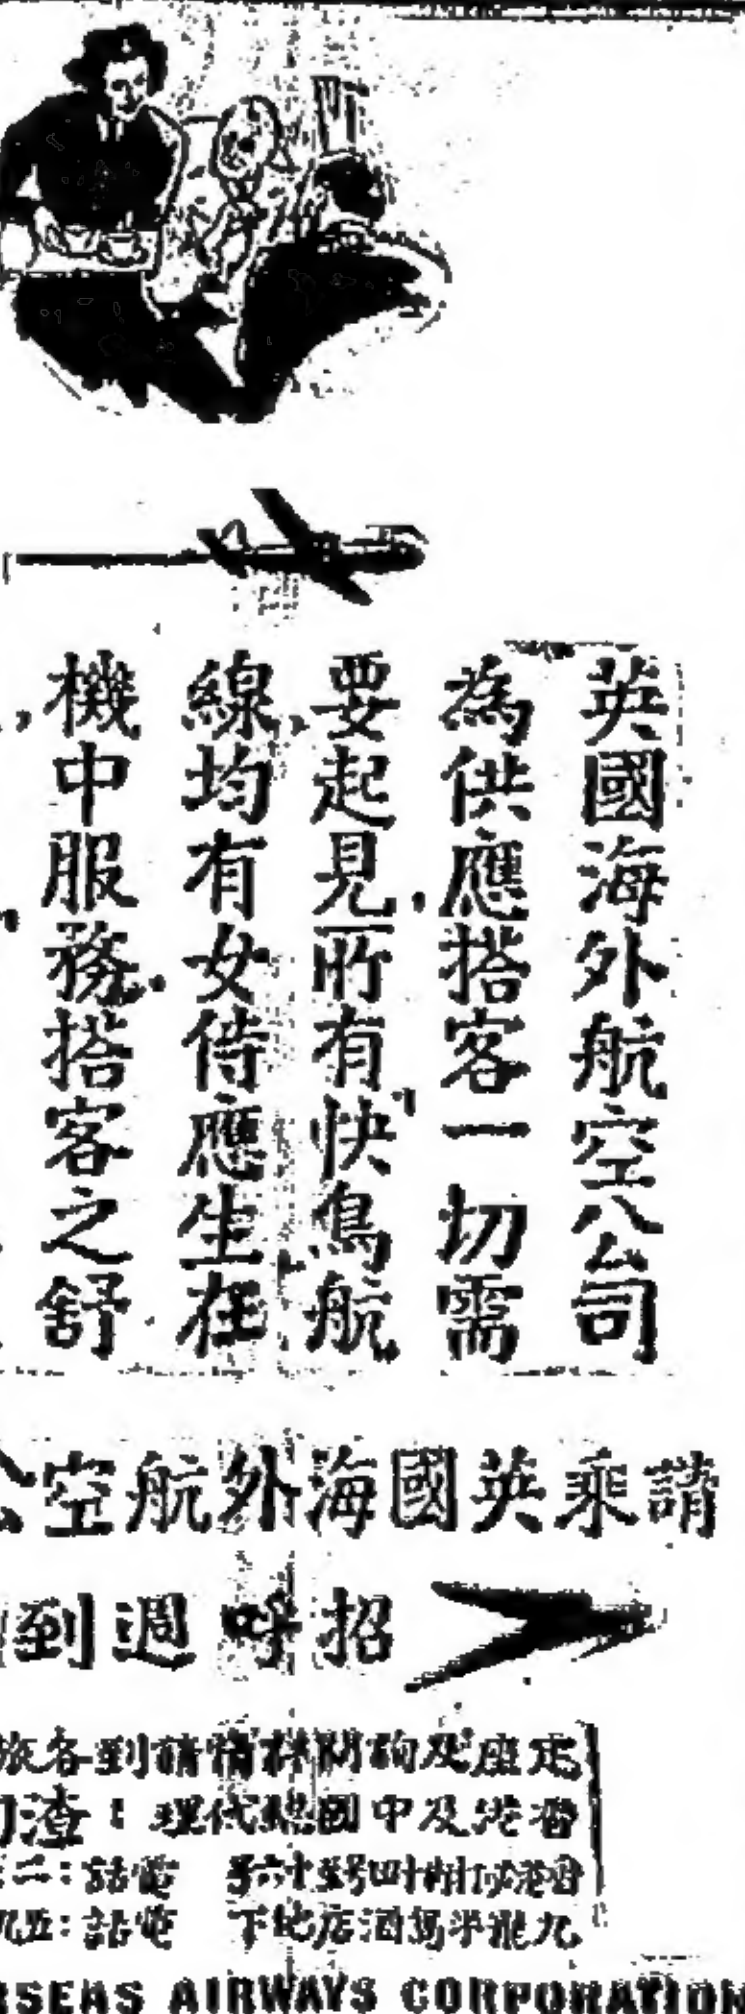 英國海外航空公司
為供應搭客一切需
要起見,所有快鳥航
線,均有女侍應生在
機中服務.搭客之舒
請乘英國海外航空公
招呼週到
定座及詢問詳情請到各旅
香港及中國總代理:渣甸
香港 十六號 電話:二
九龍半島酒店地下 電話:五九
OVERSEAS AIRWAYS CORPORATION